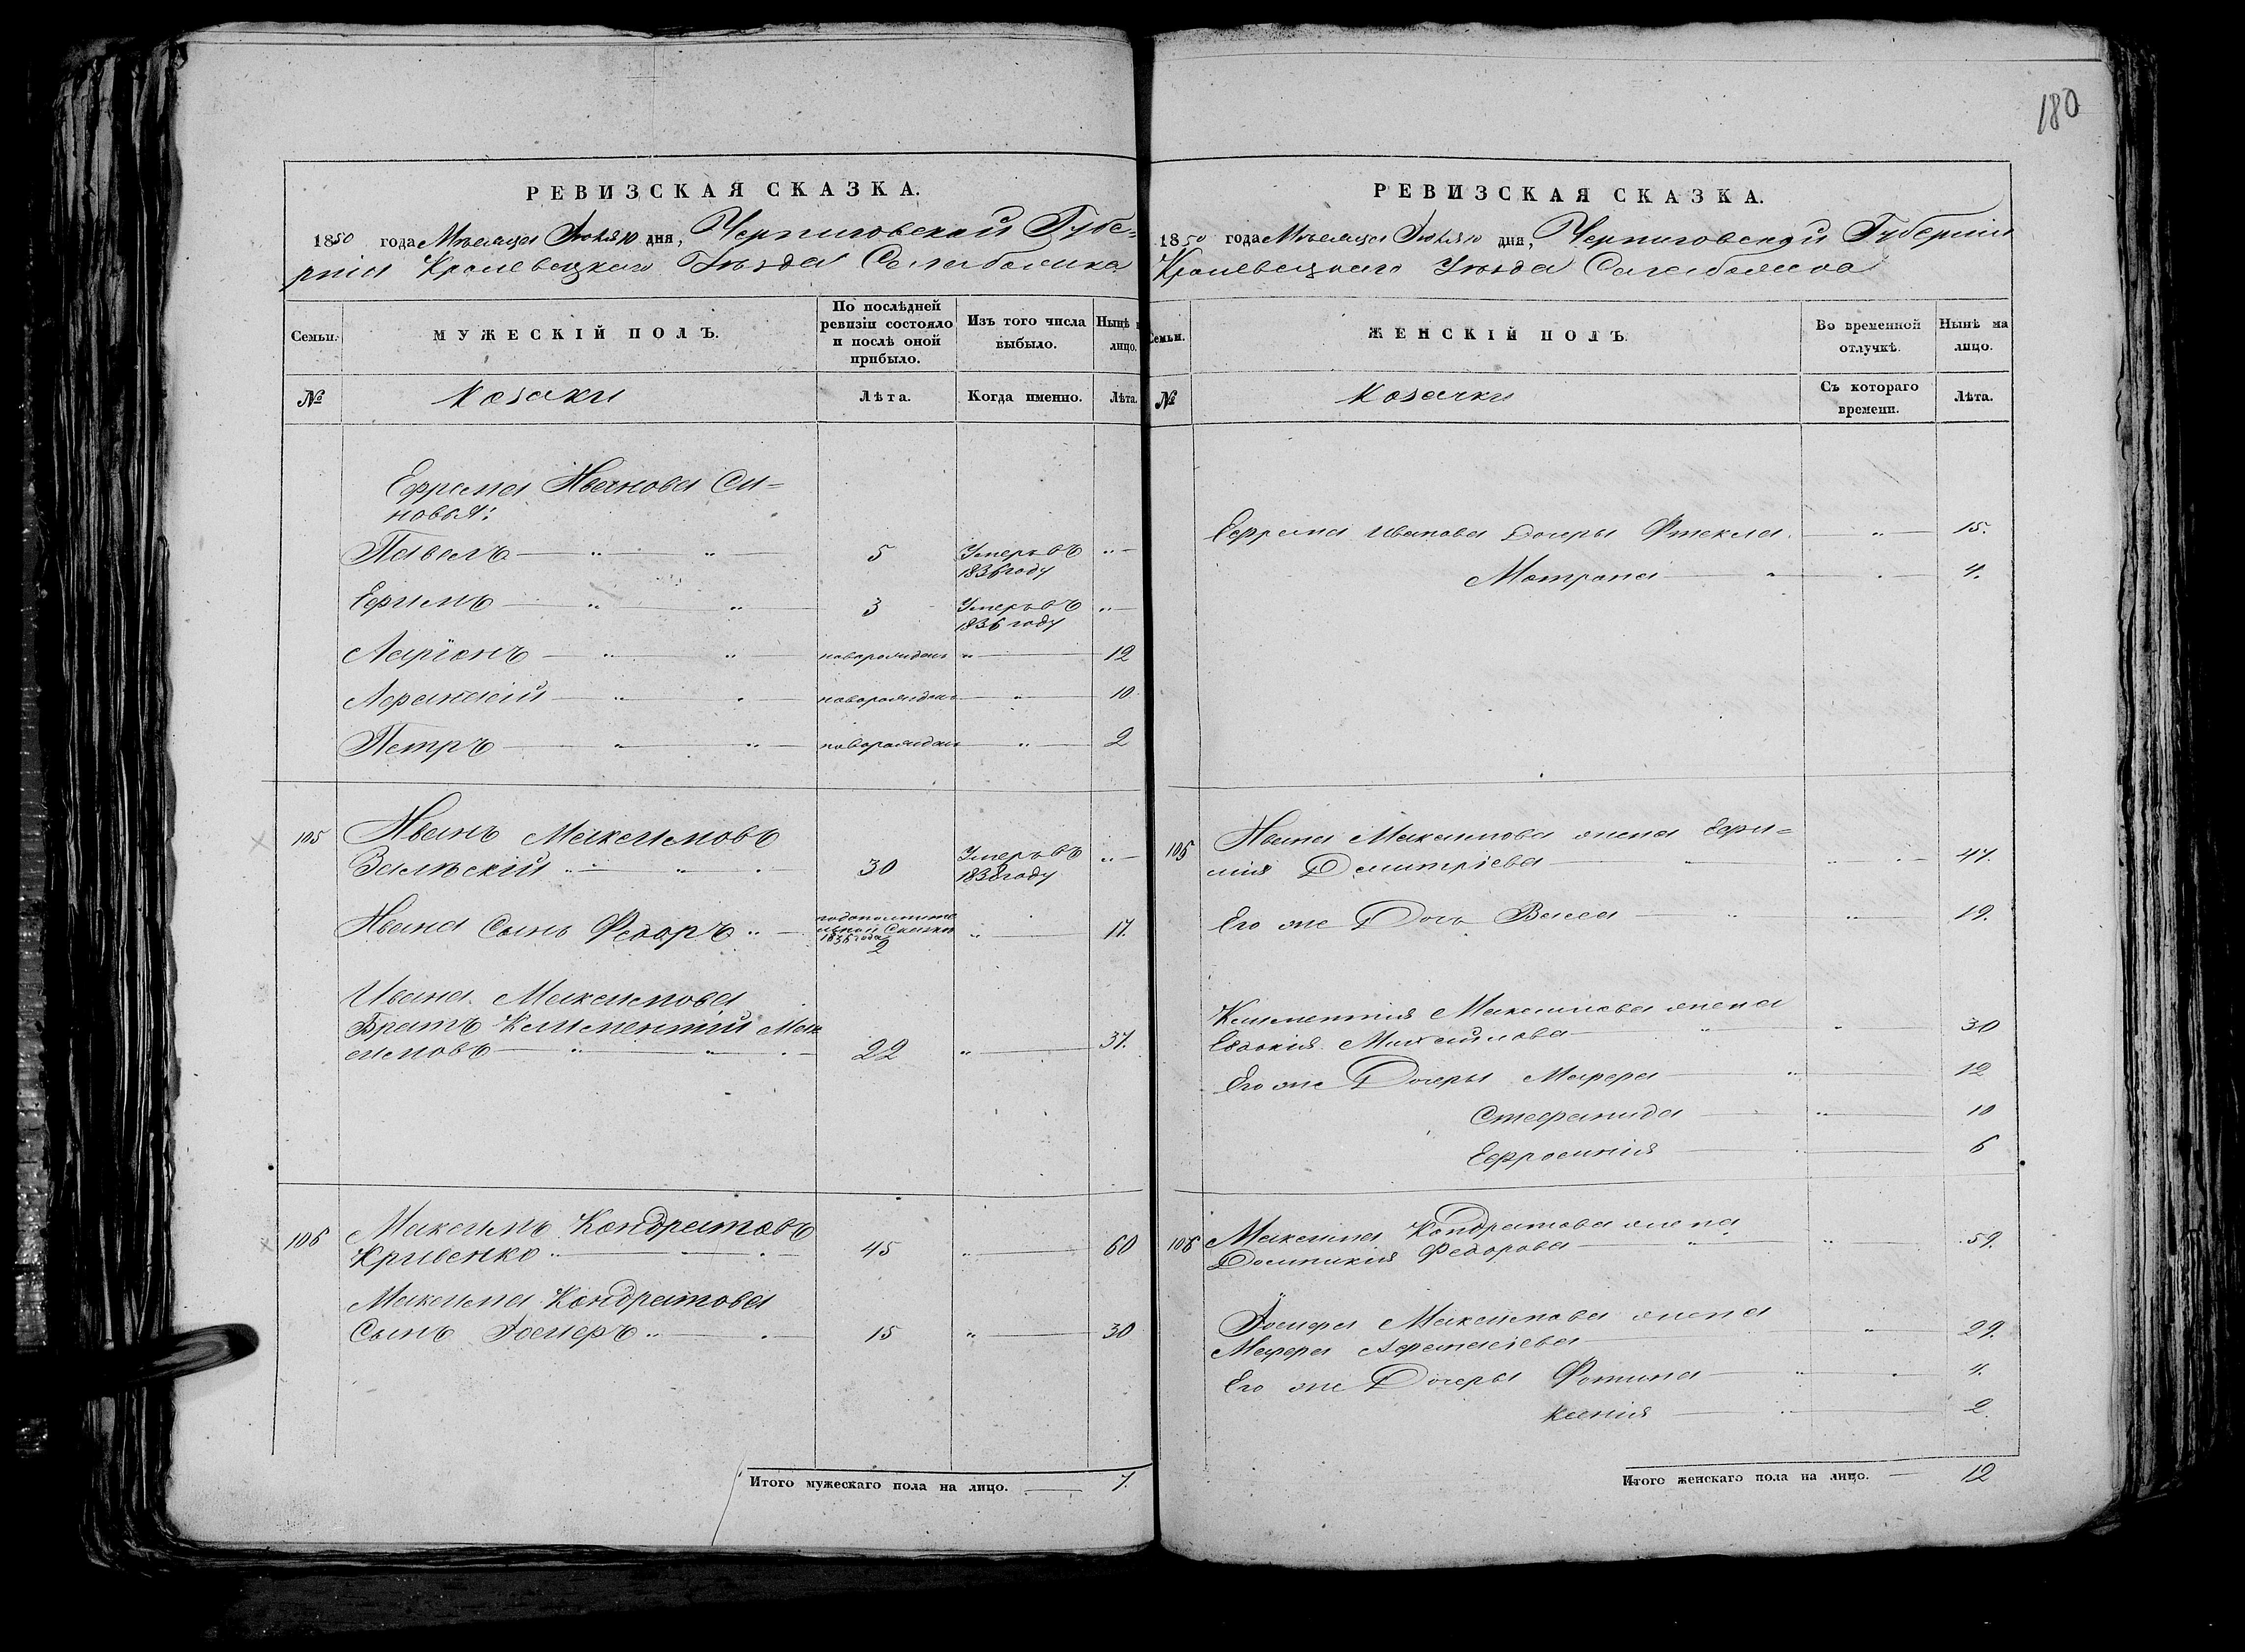 180
РЕВИЗСКАЯ СКАЗКА.
1850 года Мѣсяца Іюля 10 дня, Черниговской Губе=
рніи Кролевецкаго Уѣзда Села
Семьи.
МУЖЕСКІЙ ПОЛЪ.
По послѣдней ревизіи состояло и послѣ оной прибыло.
Изъ того числа выбыло.
Нынѣ на лицо.
№
Козаки
Лѣта.
Когда именно.
Лѣта.
Ефрема Иванова Си=
новья:
Павелъ 5 Умеръ въ
1836 году
Ефимъ 3 Умеръ въ
1836 году
Ларіонъ новорожден 12
Афанасій новорожден 10
Петръ новорожден 2
105 Иванъ Максимовъ
Залѣскій 30 Умеръ въ
1838 году
Ивана Сынъ Федоръ
1836 года
2 17.
Ивана Максимова
Братъ Климентій Мак
симовъ 22 37.
106 Максимъ Кондратовъ
Кривенко 45 60
Максима Кондратова
Сынъ Іосифъ 15 30
Итого мужескаго пола на лицо. 7.
РЕВИЗСКАЯ СКАЗКА.
1850 года Мѣсяца Іюля 10 дня, Черниговской Губерніи
Кролевецкаго Уѣзда Села
Семьи.
ЖЕНСКІЙ ПОЛЪ.
Во временной отлучкѣ.
Нынѣ на лицо.
№
Козачки
Съ котораго времени.
Лѣта.
Ефрема Иванова Дочеры Фтекла 15.
Матрона 4.
105 Ивана Максимова жена Ефи=
мія Дмитріева 47.
Его же Дочъ Васса 19.
Климентія Максимова жена
Евдокия Михайлова 30
Его же Дочеры Марфа 12
Стефанида 10
Ефросинія 6
106 Максима Кондратова жена
Домникія Федорова 59.
Іосифа Максимова жена
Марфа Афанасіева 29.
Его же Дочеры Фотина 4.
Ксенія 2.
Итого женскаго пола на лицо. 12